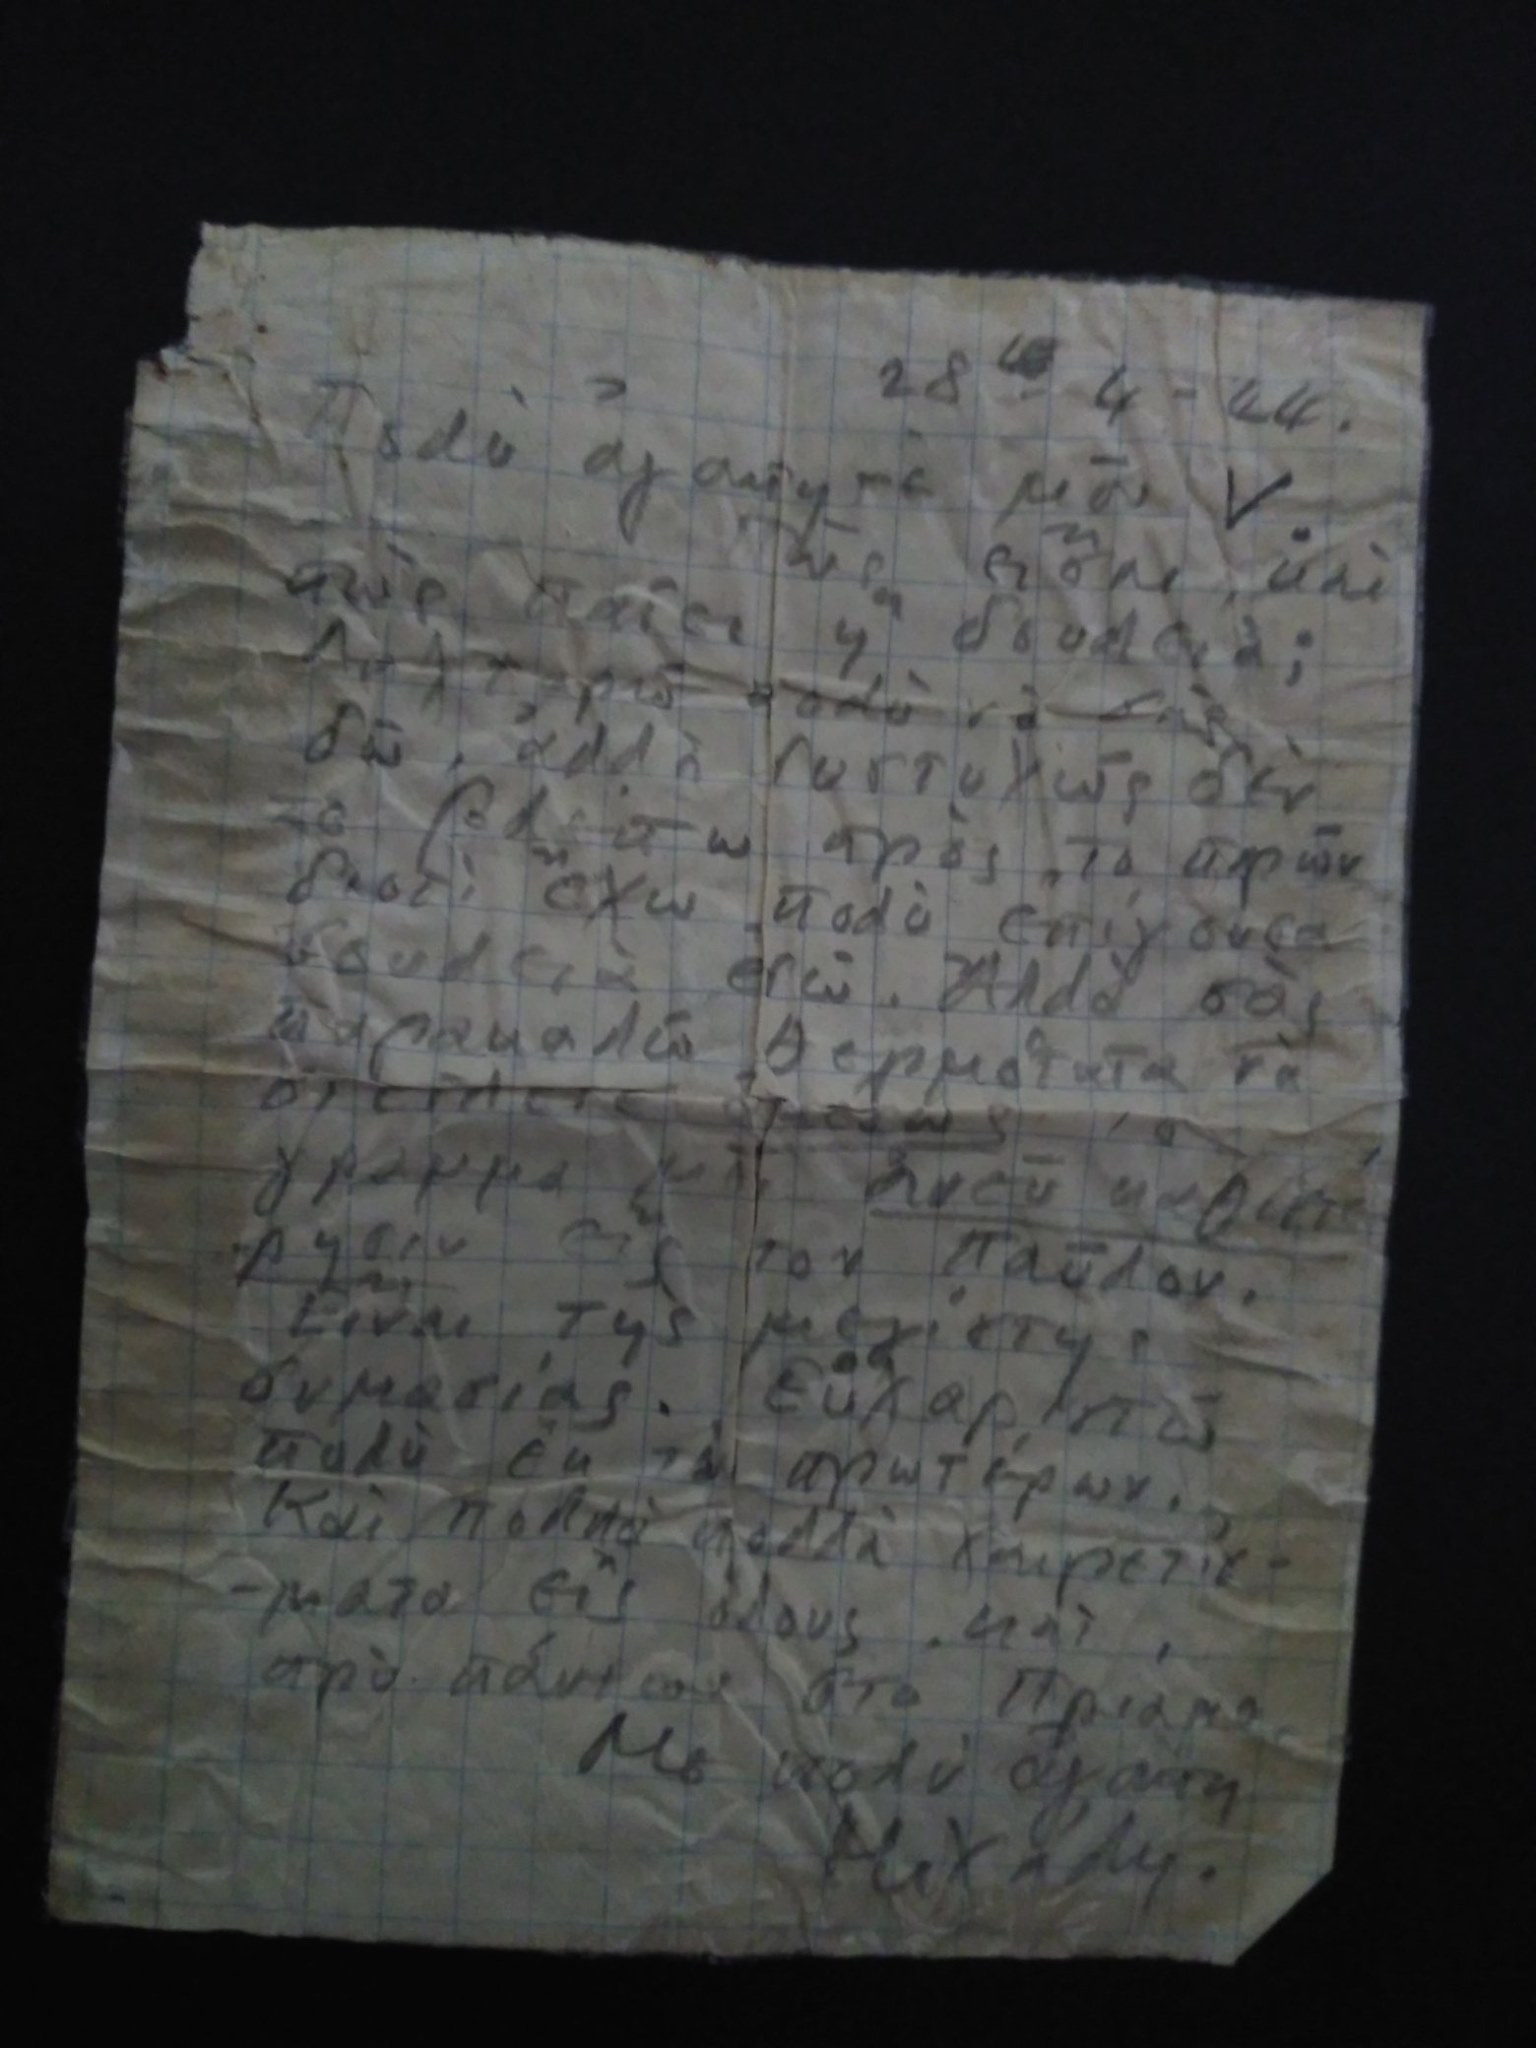 28 - 4 - 44.
Πολὺ ἀγαπητέ μου V.
Πῶς εἶσαι, καὶ
πῶς πάει ἡ δουλειά;
πολὺ νὰ σᾶς
δῶ, ἀλλὰ δυστυχῶς δὲν
τὸ βλέπω πρὸς τὸ παρὼν
διότι ἔχω πολὺ ἐπίγουσα
δουλειὰ ἐδῶ. Ἀλλὰ σᾶς
παρακαλῶ θερμότατα νὰ
στείλετε τὸ
γράμμα μου ἄνευ καθιστέ
ρησιν εἰς τον Παῦλον.
Εἶναι τῆς μεγίστης
σημασίας. Εὐχαριστῶ
πολὺ ἐκ τῶ προτέρων.
Καὶ πολλὰ πολλὰ χαιρετίσ-
-ματα εἰς ὅλους καὶ
πρὸ πάντων στο Πρίαμο.
Με πολὺ ἀγάπη
Μιχάλη.